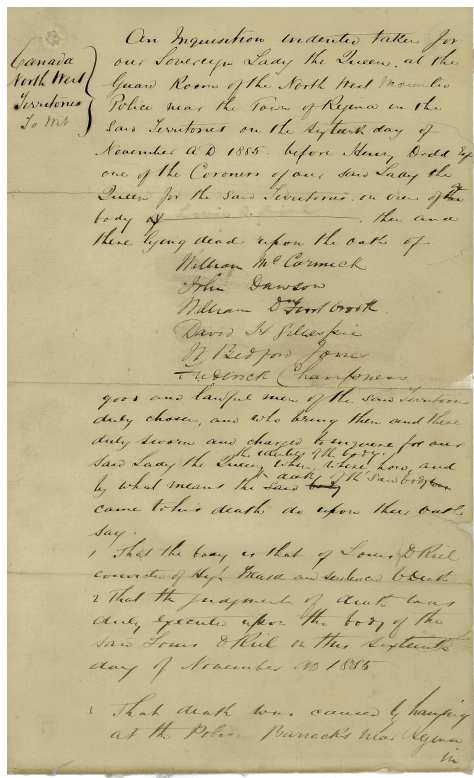 Canada
North West
Territories
To Wit
An Inquisition indented taken for
our Sovereign Lady the Queen at the
Guard Room of the North West Mounted
Police near the Town of Regina in the
said Territories on the sixteenth day of
November A D 1885 before Henry Dodd Esq
one of the Coroners of our said Lady the
Queen for the said Territories on view of the
body of then and
there lying dead upon the oaths of
William McCormick
John Dawson
William
David H Gillespie
Bedford Jones
Frederick Champness
good and lawful men of the said Territories
duly chosen, and who being then and there
duly sworn and charged to inquire for our
said Lady the Queen the identity of the body. when, where how, and
by what means the death of the said body
came to his death do upon their oaths
say.
1 That the body is that of Louis D Riel
convicted of High Treason and sentenced to Death
2 That the judgment of death was
duly executed upon the body of the
said Louis D Riel on this sixteenth
day of November AD 1885
That death was caused by hanging
at the Police Barracks near Regina
in